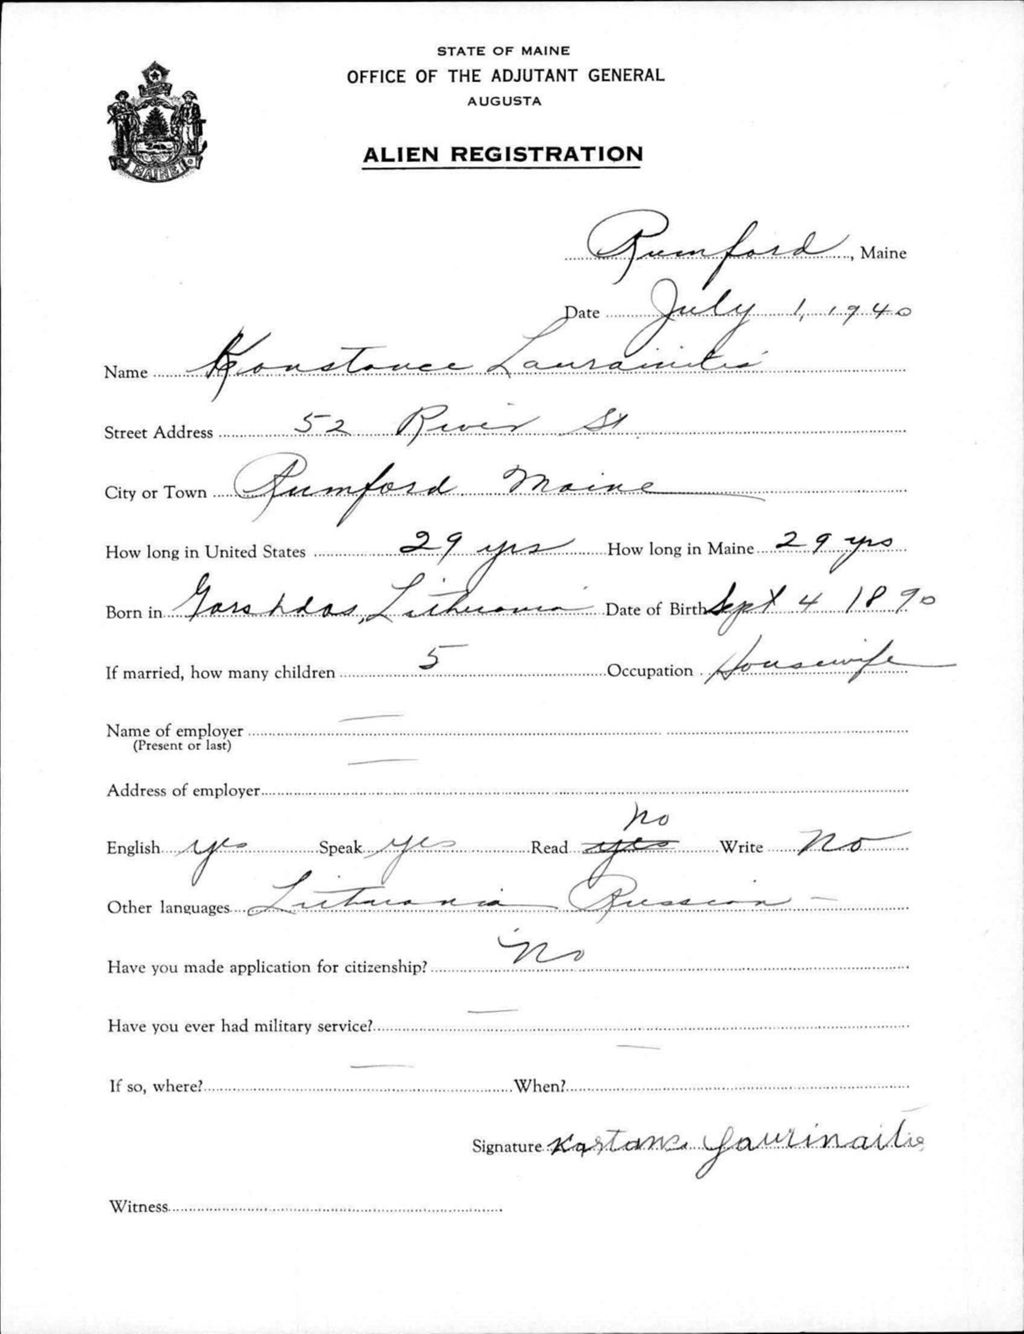 STATE OF MAINE
OFFICE OF THE ADJUTANT GENERAL
AUGUSTA
ALIEN REGISTRATION
MAINE
Rumford, Maine
Date July 1, 1940
Name Konstance Laurainitis
Street Address 52 River St
City or Town Rumford Maine
How long in United States 29 yrs How long in Maine 29 yrs
Born in Lithuania Date of Birth Sept 4 1890
If married, how many children 5 Occupation Housewife
Name of employer
(Present or last)
Address of employer
No
English yes Speak yes Read yes Write No
Other languages Lithuania Russian -
Have you made application for citizenship? No
Have you ever had military service? —
If so, where? — When? —
Signature Laurinaitis
Witness